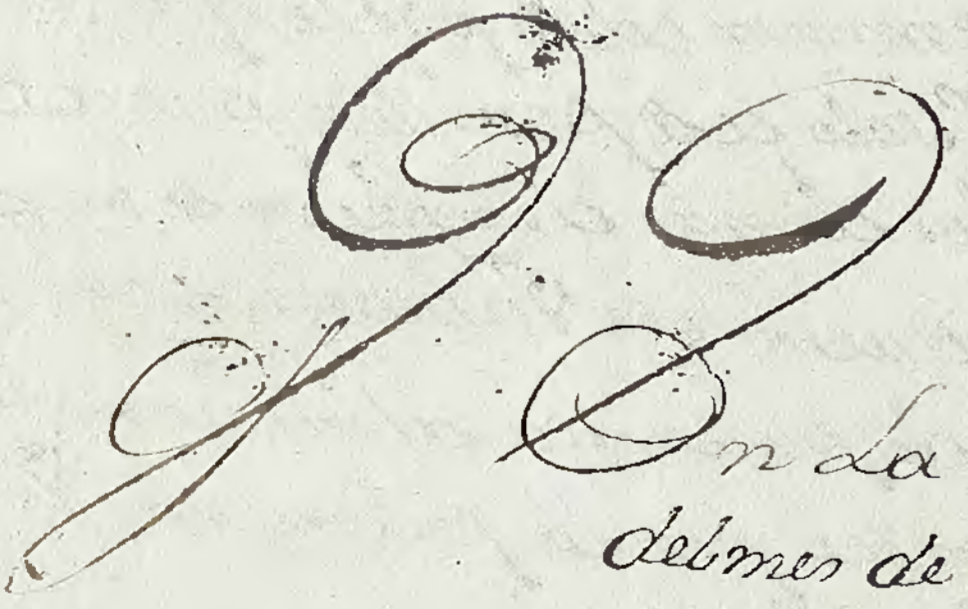 En La
del mes de